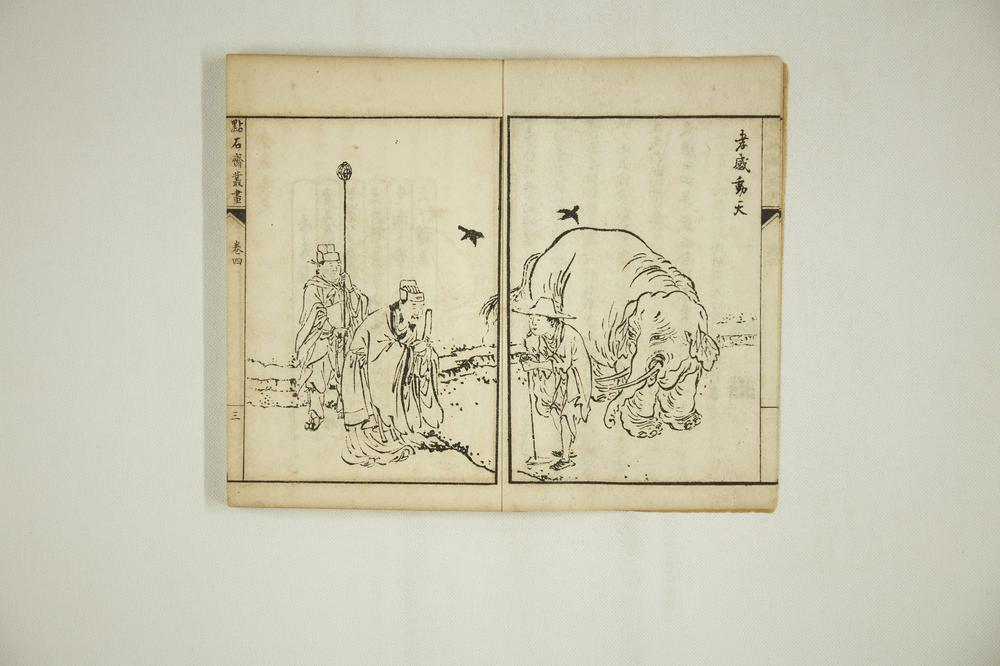 孝感動天
點石齋叢畫
卷四
三